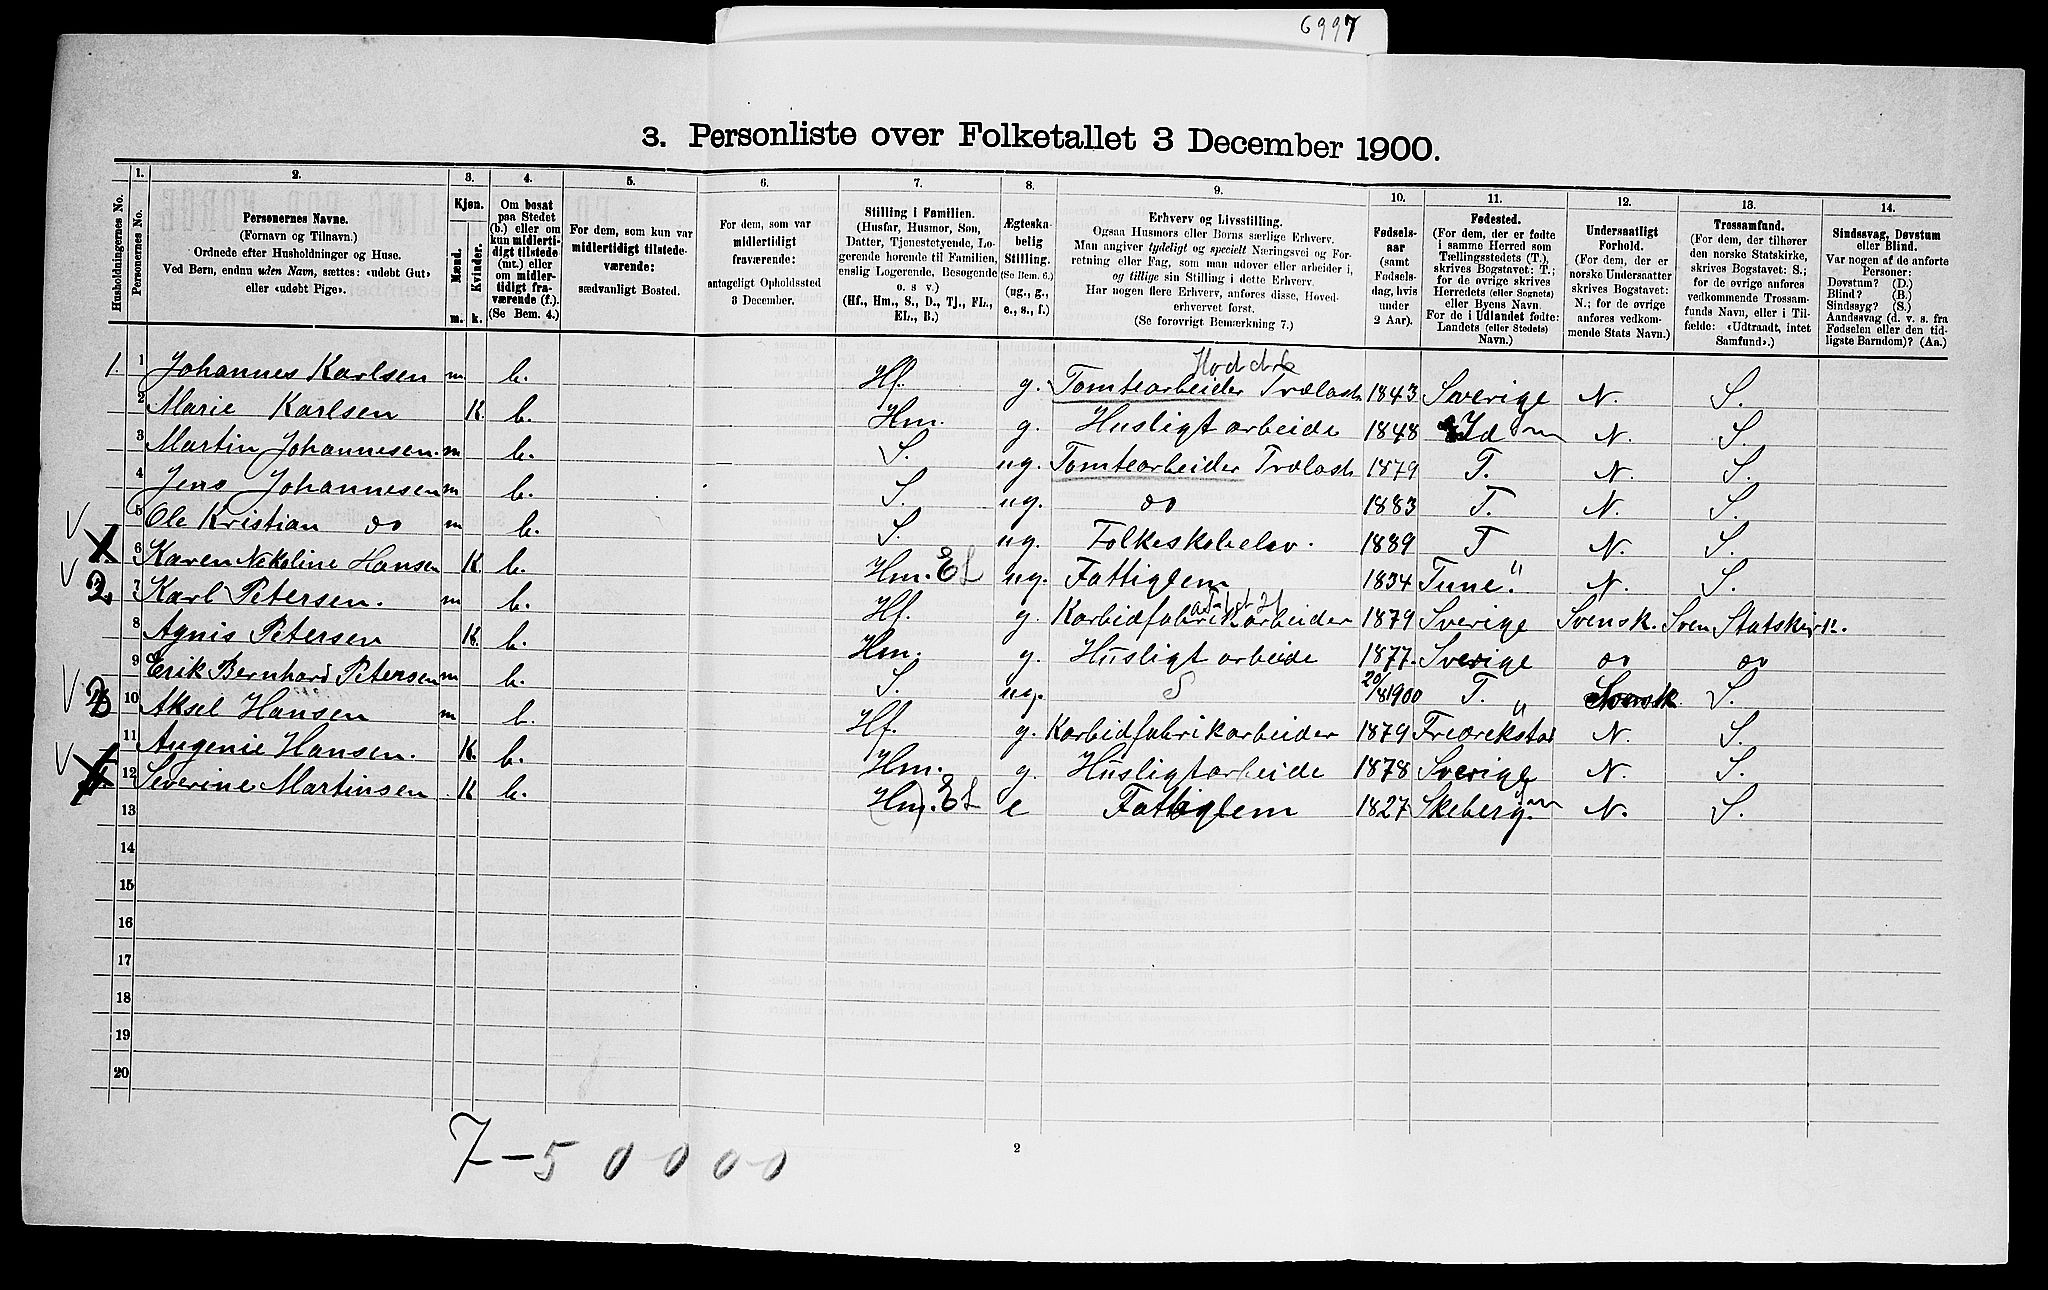 6997
3. Personliste over Folketallet 3 December 1900.
Husholdningernes No.
1.
Personernes No.
2.
Personernes Navne.
(Fornavn og Tilnavn.)
Ordnede efter Husholdninger og Huse.
Ved Børn, endnu uden Navn, sættes: «udøbt Gut»
eller «udøbt Pige».
3.
Kjøn.
Mænd.
m.
Kvinder.
k.
4.
Om bosat
paa Stedet
(b.) eller om
kun midlerti-
digt tilstede
(mt.) eller
om midler-
tidigt fra-
værende (f.).
(Se Bem. 4.)
5.
For dem, som kun var
midlertidigt tilstede-
værende:
sædvanligt Bosted.
6.
For dem, som var
midlertidigt
fraværende:
antageligt Opholdssted
3 December.
7.
Stilling i Familien.
(Husfar, Husmor, Søn,
Datter, Tjenestetyende, Lo-
gerende hørende til Familien,
enslig Logerende, Besøgende
o. s. v.)
(Hf., Hm., S., D., Tj., FL.,
EL., B.)
8.
Ægteska-
belig
Stilling.
(Se Bem. 6.)
(ug., g.,
e., s., f.)
9.
Erhverv og Livsstilling.
Ogsaa Husmors eller Børns særlige Erhverv.
Man angiver tydeligt og specielt Næringsvei og For-
retning eller Fag, som man udøver eller arbeider i,
og tillige sin Stilling i dette Erhverv.
Har nogen flere Erhverv, anføres disse, Hoved-
erhvervet først.
(Se forøvrigt Bemærkning 7.)
10.
Fødsels-
aar
(samt
Fødsels-
dag, hvis
under
2 Aar).
11.
Fødested.
(For dem, der er fødte
i samme Herred som
Tællingsstedets (T.),
skrives Bogstavet: T.;
for de øvrige skrives
Herredets (eller Sognets)
eller Byens Navn.
For de i Udlandet fødte:
Landets (eller Stedets)
Navn.)
12.
Undersaatligt
Forhold.
(For dem, der er
norske Undersaatter
skrives Bogstavet:
N.; for de øvrige
anføres vedkom-
mende Stats Navn.)
13.
Trossamfund.
(For dem, der tilhører
den norske Statskirke,
skrives Bogstavet: S.;
for de øvrige anføres
vedkommende Trossam-
funds Navn, eller i Til-
fælde: «Udtraadt, intet
Samfund».)
14.
Sindssvag, Døvstum
eller Blind.
Var nogen af de anførte
Personer:
Døvstum? (D.)
Blind? (B.)
Sindssyg? (S.)
Aandssvag (d. v. s. fra
Fødselen eller den tid-
ligste Barndom)? (Aa.)
1. 1 Johannes Karlsen m b. Hf. g. Tomtearbeider Trælast 1843 Sverige N. S.
2 Marie Karlsen K. b. Hm. g. Husligt arbeide 1848 Id N. S.
3 Martin Johannesen. m b. S. ug. Tomtearbeider Trælast 1879 T. N. S.
4 Jens Johannesen m b. S. ug. do 1883 T. N. S.
5 Ole Kristian do m b. S. ug. Folkeskoleelev. 1889 T N. S.
6 Karen Nikoline Hansen K. b. Hm. EL ug. Fattiglem 1834 Tune. N. S.
2. 7 Karl Petersen. m b. Hf. g. Karbidfabrikarbeider 1879 Sverige Svensk. Sven Statskirk.
8 Agnis Petersen K. b. Hm. g. Husligt arbeide 1877. Sverige do do
9 Erik Bernhard Petersen m b. S. ug. S 20/8 1900 T. Svensk S.
10 Aksel Hansen m b. Hf. g. Karbidfabrikarbeider 1879 Fredrikstad N. S.
11 Augenie Hansen. K. b. Hm. g. Husligt arbeide 1878 Sverige N. S.
12 Severine Martinsen K b. Hm. EL e Fattiglem 1827 Skeberg. N. S.
13
14
15
16
17
18
19
20
7-50000
2